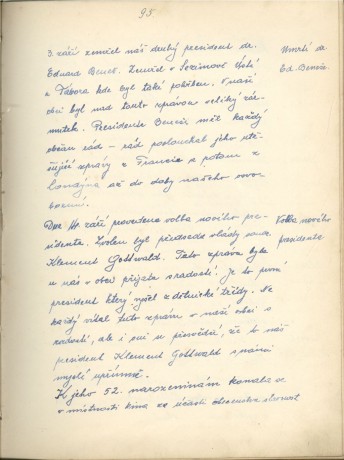 95
3. září zemřel náš druhý president dr.
Eduard Beneš. Zemřel v Sezimově Ústí
u Tábora kde byl také pohřben. V naší
obci byl nad touto zprávou veliký zár-
mutek. Presidenta Beneše měl každý
občan rád – rád poslouchal jeho utě-
šující zprávy z Francie a potom z
Londýna až do doby našeho osvo-
bození.
Úmrtí dr.
Ed. Beneše.
Dne září provedena volba nového pre-
sidenta. Zvolen byl předseda vlády soud.
Klement Gottwald. Tato zpráva byla
u nás v obci přijata s radostí. Je to první
president který vyšel z dělnické třídy. Ne
každý vítal tuto zprávu v naší obci s
radostí, ale i oni se přesvědčí, že to náš
president Klement Gottwald s námi
myslí upřímně.
Volba nového
presidenta
K jeho 52. narozeninám konala se
v místnosti kina za účasti občanstva slavnost